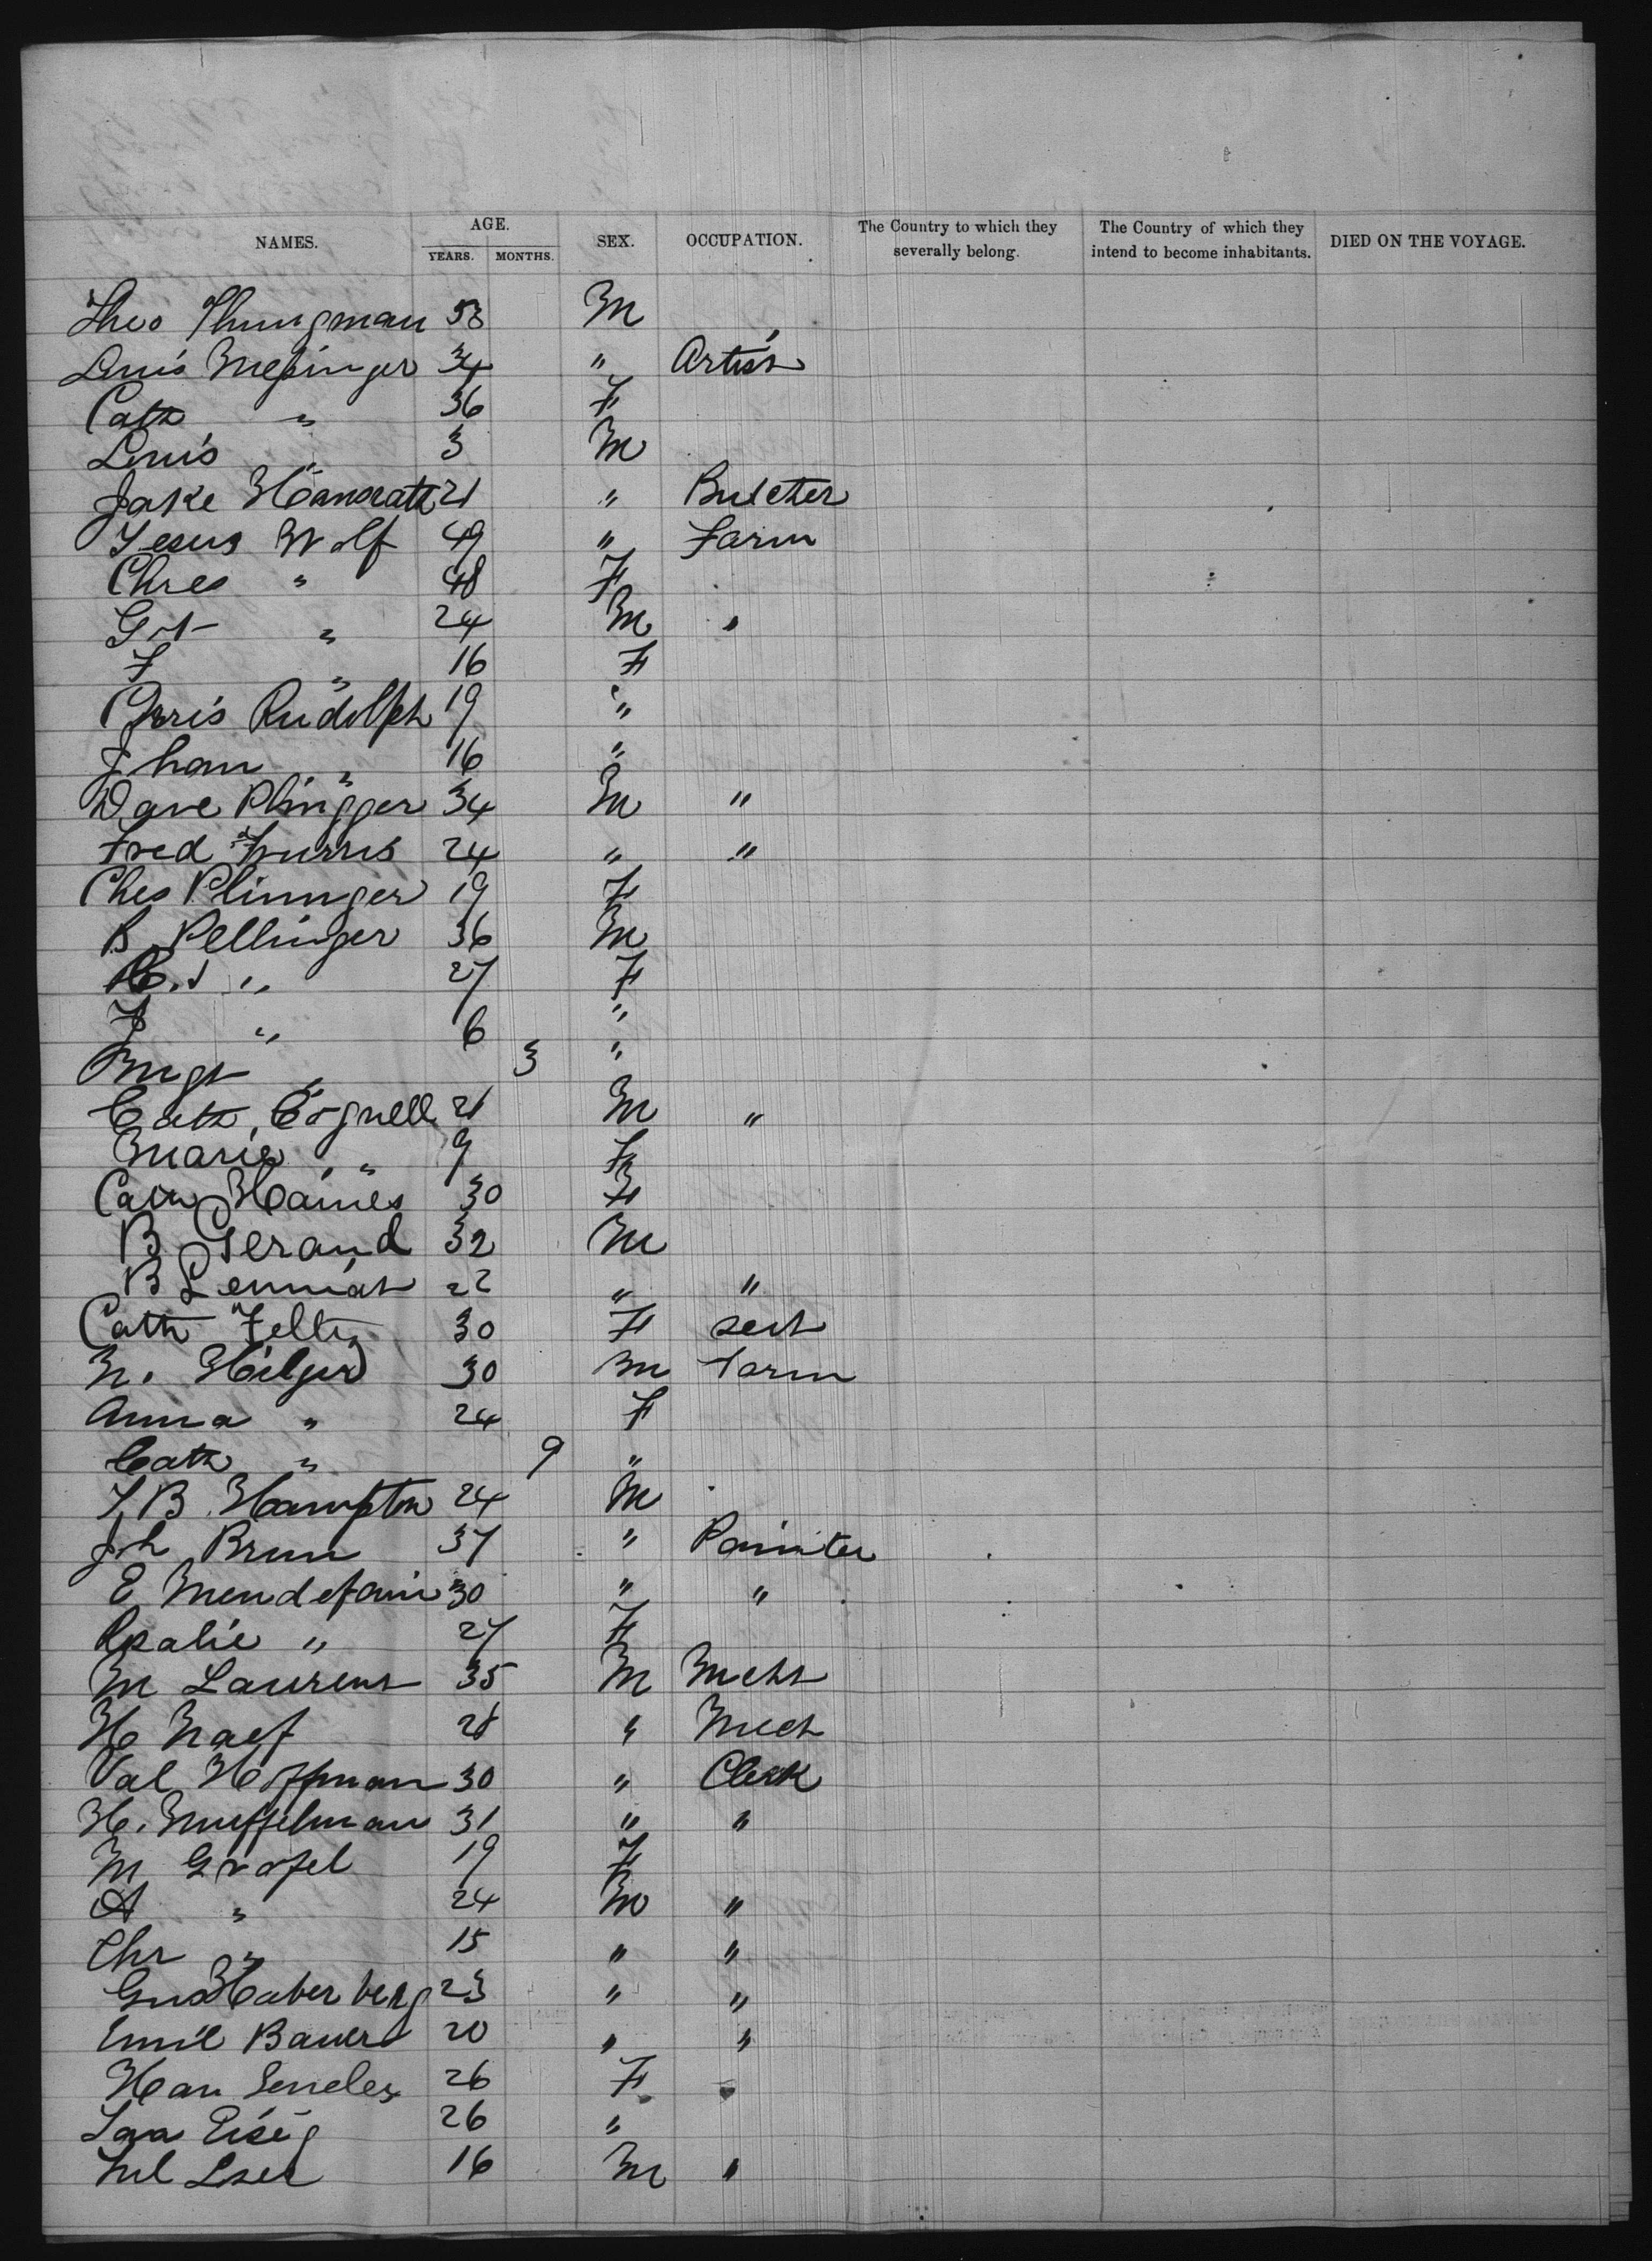 NAMES. AGE. YEARS. MONTHS. SEX. OCCUPATION. The Country to which they severally belong. The Country of which they intend to become inhabitants. DIED ON THE VOYAGE.
Theo Thungman 53 M
Louis Messinger 34 " Artist
Cath " 36 F
Louis " 3 M
Jake Hansrath 21 " Butcher
Wolf 49 " Farm
Chres " 48 F
Got " 24 M "
F " 16 F
Chris Rudolph 19 "
Jhan " 16 "
Dave Plingger 34 M "
Fred 24 " "
Ches Plinnger 19 F
B Pellinger 36 M
" 27 F
" 6 "
" 3 "
Cath Cognell 21 M "
Marie " 9 F
Haines 30 F
B Gerand 32 M
B Lenniat 22 " "
Cath Felty 30 F Sert
N. Hilgerd 30 M Farm
Anna " 24 F
Cath " 9 "
B Hampton 24 M
Joh Brun 37 " Painter
E Mendefain 30 " "
Rosalie " 27 F
M Laurent 35 M Mcht
H Naef 28 " Mech
Val Hoffman 30 " Clerk
H. Muffelman 31 " "
M Grofel 19 F
A " 24 M "
Chr " 15 " "
Gus Haberberg 23 " "
Emil Bauer 20 " "
Han 26 F
Eisig 26 "
16 M "